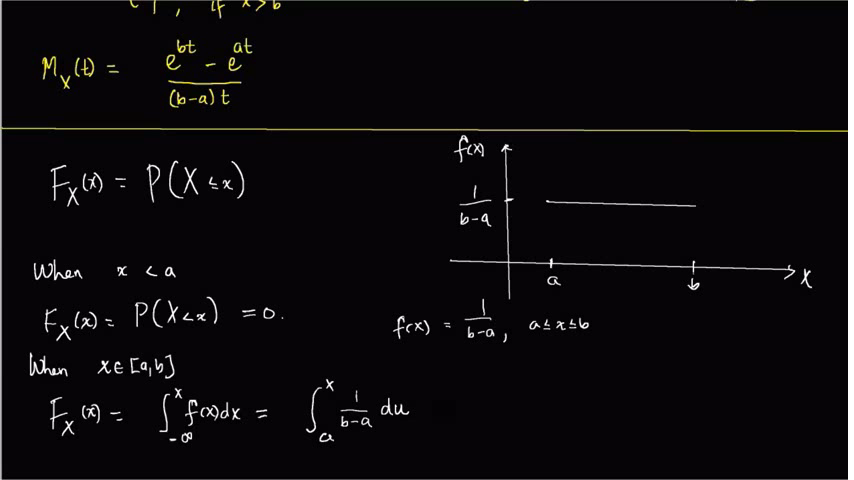 1, if x > b
M_X(t) = (e^{bt} - e^{at}) / ((b-a)t)
F_X(x) = P(X ≤ x)
When x < a
F_X(x) = P(X < x) = 0.
When x ∈ [a,b]
F_X(x) = ∫_{-∞}^{x} f(x)dx = ∫_{a}^{x} 1/(b-a) du
f(x)
1/(b-a)
a
b
X
f(x) = 1/(b-a), a ≤ x ≤ b